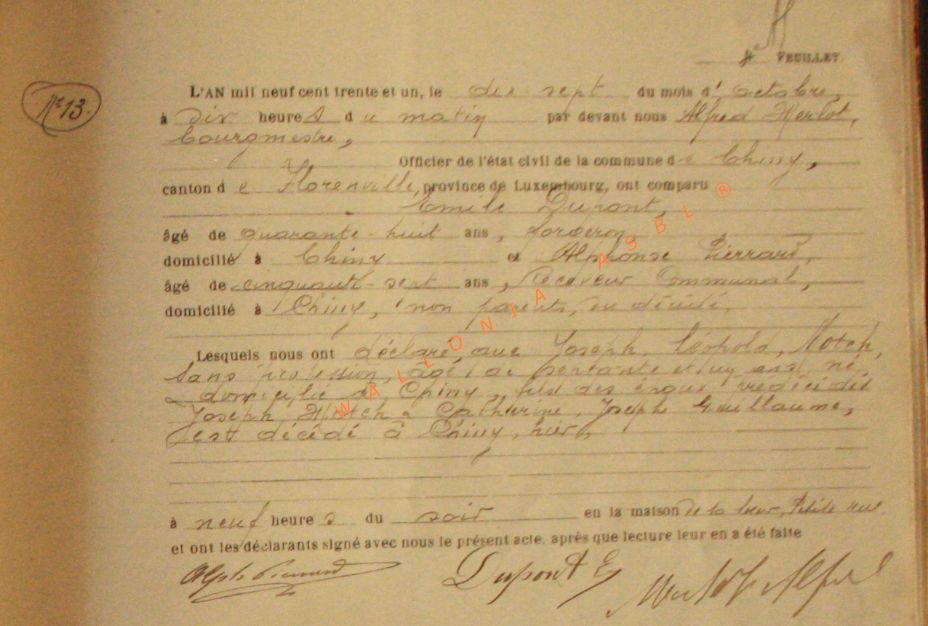 4e FEUILLET.
N° 13.
L'AN mil neuf cent trente et un, le dix sept du mois d'octobre,
à dix heures du matin par devant nous Alfred Merlot,
bourgmestre,
Officier de l'état civil de la commune de Chiny,
canton de Florenville, province de Luxembourg, ont comparu
Emile Dupont,
âgé de quarante-huit ans, forgeron,
domicilié à Chiny et Alphonse Pierrard,
âgé de cinquante-sept ans, Receveur Communal,
domicilié à Chiny, non parents, du décédé,
Lesquels nous ont déclaré que Joseph, Léopold,
sans profession, âgé de septante et un ans, né
domicilié à Chiny, fils des époux
Joseph & Catherine, Joseph Guillaume,
est décédé à Chiny, hier,
à neuf heures du soir en la maison de la Petite rue.
et ont les déclarants signé avec nous le présent acte, après que lecture leur en a été faite
Alph Pierrard Dupont E Merlot Alfred
WALLONIA ASBL ®